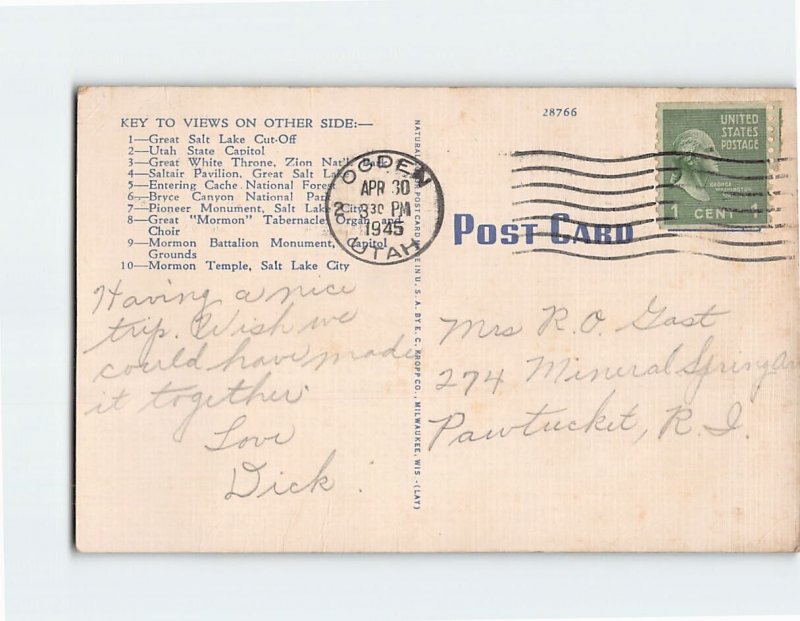 KEY TO VIEWS ON OTHER SIDE:—
1—Great Salt Lake Cut-Off
2—Utah State Capitol
3—Great White Throne, Zion Nat'l Park
4—Saltair Pavilion, Great Salt Lake
5—Entering Cache National Forest
6—Bryce Canyon National Park
7—Pioneer Monument, Salt Lake City
8—Great "Mormon" Tabernacle Organ and
Choir
9—Mormon Battalion Monument, Capitol
Grounds
10—Mormon Temple, Salt Lake City
Having a nice
trip. Wish we
could have made
it together.
Love
Dick.
OGDEN
APR 30
8 30 PM
1945
UTAH
POST CARD MADE IN U. S. A. BY E. C. KROPP CO., MILWAUKEE, WIS.-(LAT)
28766
UNITED
STATES
POSTAGE
GEORGE
WASHINGTON
1 CENT 1
POST CARD
Mrs R. O. Gast
274 Mineral Spring
Pawtucket, R. I.